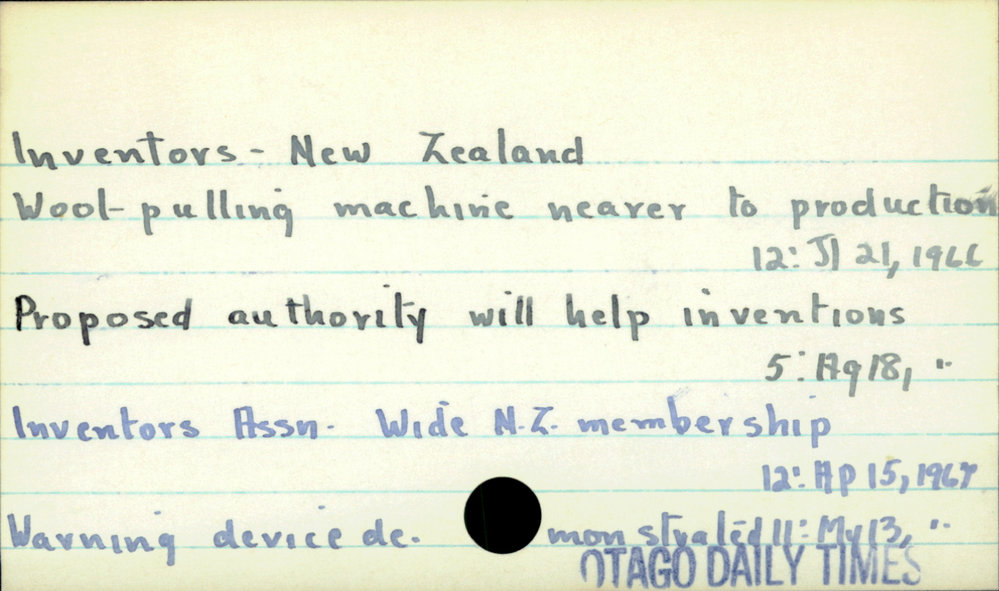 Inventors - New Zealand
Wool-pulling machine nearer to production
12: Jl 21, 1966
Proposed authority will help inventions
5: Ag 18, "
Inventors Assn. Wide N.Z. membership
12: Ap 15, 1967
Warning device de. monstrated 11: My 13, "
OTAGO DAILY TIMES